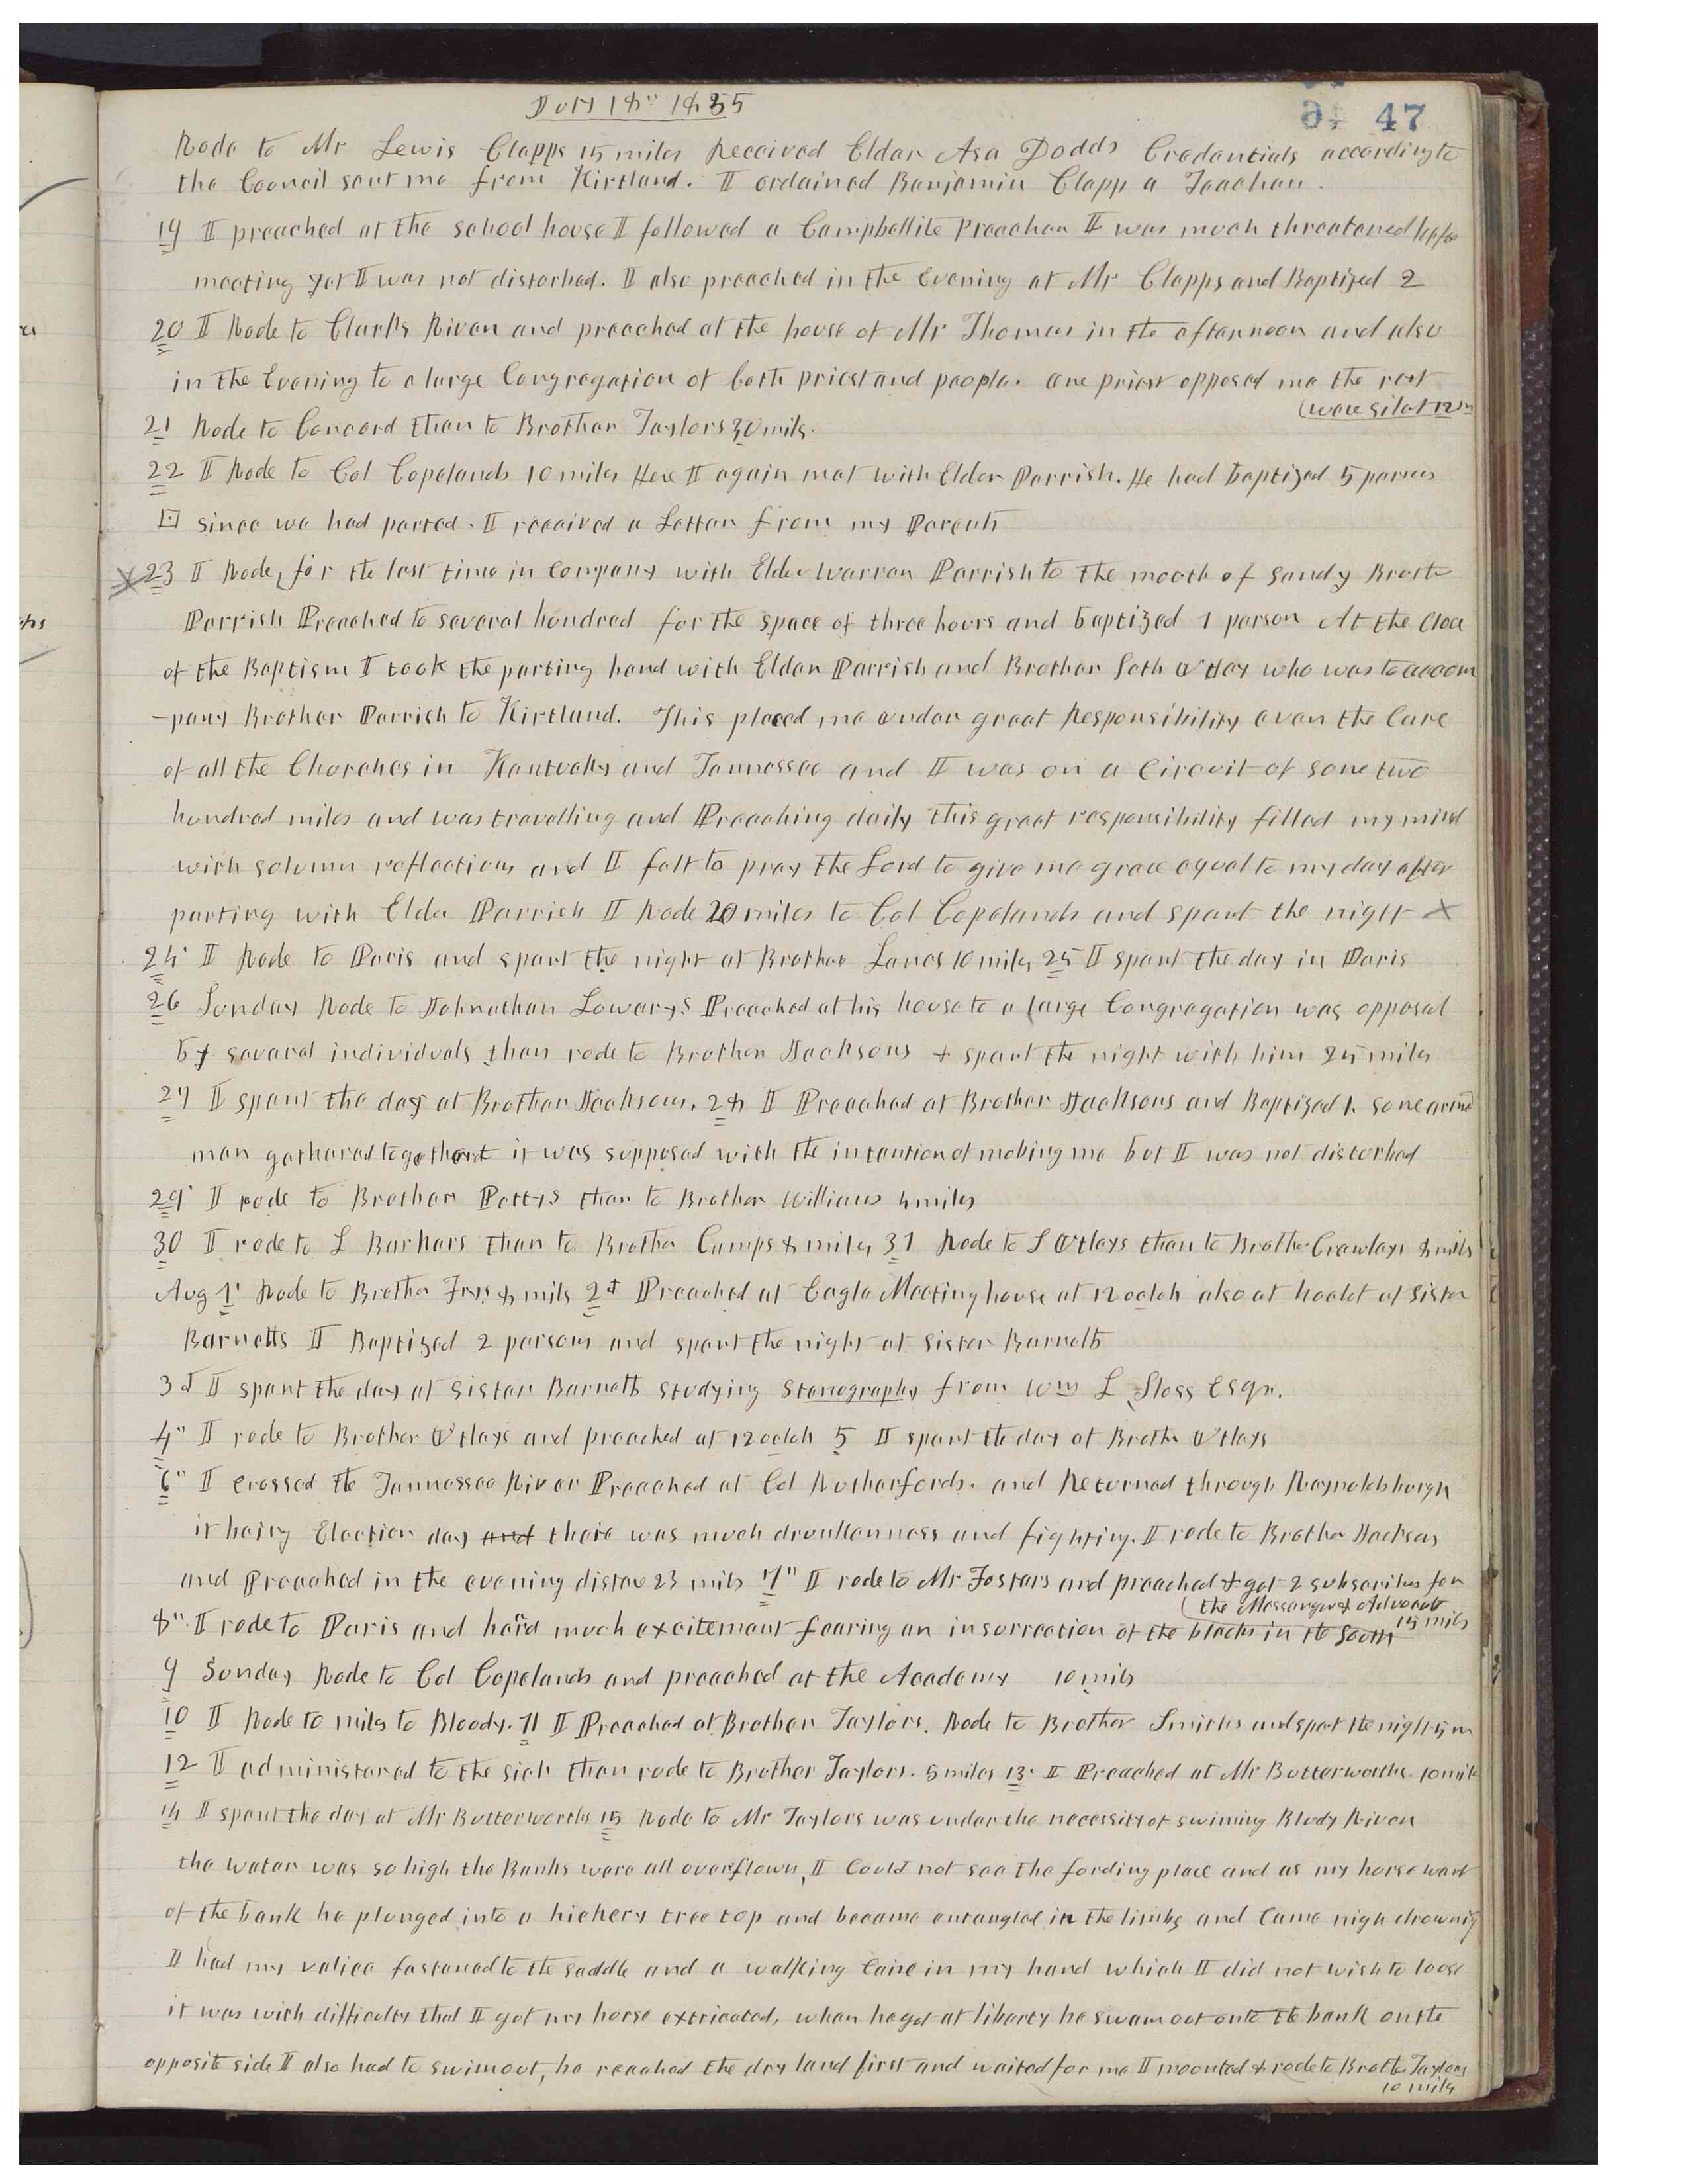 July 18" 1835
47
Rode to Mr Lewis Clapps 15 miles Received Elder Asa Dodds Credentials according to
the Council sent me from Kirtland. I ordained Benjamin Clapp a Teacher.
19 I preached at the school house I followed a Campbellite Preacher I was much threatened before
meeting yet I was not disturbed. I also preached in the Evening at Mr Clapps and Baptized 2
20 I Rode to Clarks River and preached at the house of Mr Thomas in the afternoon and also
in the Evening to a large Congregation of both priest and people. one priest opposed me the rest
(were silet 12 m
21 Rode to Concord then to Brother Taylors 30 mils.
22 I Rode to Col Copelands 10 miles Here I again met with Elder Parrish. He had baptized 5 persons
since we had parted. I received a Letter from my Parents
23 I Rode, for the last time in Company with Elder Warren Parrish to the mouth of Sandy Brother
Parrish Preached to several hundred for the space of three hours and baptized 1 person At the Close
of the Baptism I took the parting hand with Elder Parrish and Brother Seth Utley who was to accom
-pany Brother Parrish to Kirtland. This placed me under great Responsibility even the Care
of all the Churches in Kentucky and Tennessee and I was on a Circuit of some two
hundred miles and was travelling and Preaching daily this great responsibility filled my mind
with solumn reflections and I felt to pray the Lord to give me grace equal to my day after
parting with Elder Parrish I Rode 20 miles to Col Copelands and spent the night
24" I Rode to Paris and spent the night at Brother Lanes 10 miles 25 I spent the day in Paris
26 Sunday Rode to Johnathan Lowery's Preached at his house to a large Congregation was opposed
by several individuals then rode to Brother Jacksons + spent the night with him 25 miles
27 I spent the day at Brother Jacksons. 28 I Preached at Brother Jacksons and Baptized 1. some armed
men gathered together it was supposed with the intention of mobing me but I was not disturbed
29" I rode to Brother Pettys then to Brother Williams 4 miles
30 I rode to L Barkers then to Brother Camps 8 miles 31 Rode to S Utleys then to Brother Crawleys 8 mils
Aug 1" Rode to Brother Frys 8 mils 2d Preached at Eagle Meetinghouse at 12 oclok also at 4 oclok at Sister
Barnetts I Baptized 2 persons and spent the night at Sister Barnetts
3d I spent the day at Sister Barnetts studying Stenography from Wm L Sloss Esqr.
4" I rode to Brother Utleys and preached at 12 oclok 5 I spent the day at Brother Utleys
6" I Crossed the Tennessee River Preached at Col Rutherfords. and Returned through Raynoldsburgh
it being Election day and there was much drunkenness and fighting. I rode to Brother Jacksons
and Preached in the evening distace 23 mils 7" I rode to Mr Fosters and preached & got 2 subscribers for
(the Messenger & Advocate
8". I rode to Paris and hard much excitement fearing an insurrection of the blacks in the South 15 mils
9 Sunday Rode to Col Copelands and preached at the Academy 10 mils
10 I Rode 10 mils to Bloody. 11 I Preached at Brother Taylors. Rode to Brother Smiths and spent the night 5 m
12 I administered to the sick then rode to Brother Taylors. 5 miles 13. I Preached at Mr Butterworths. 10 mils
14 I spent the day at Mr Butterworths 15 Rode to Mr Taylors was under the necessity of swiming Blody River
the water was so high the Banks were all overflown, I Could not see the fording place and as my horse went
of the bank he plunged into a hickery tree top and became entangled in the limbs and Came nigh drownig
I had my valice fastened to the saddle and a walking Cane in my hand which I did not wish to loose
it was with difficulty that I got my horse extricated, when he got at liberty he swam out onto the bank on the
opposite side I also had to swim out, he reached the dry land first and waited for me I mounted & rode to Brother Taylors
10 mils